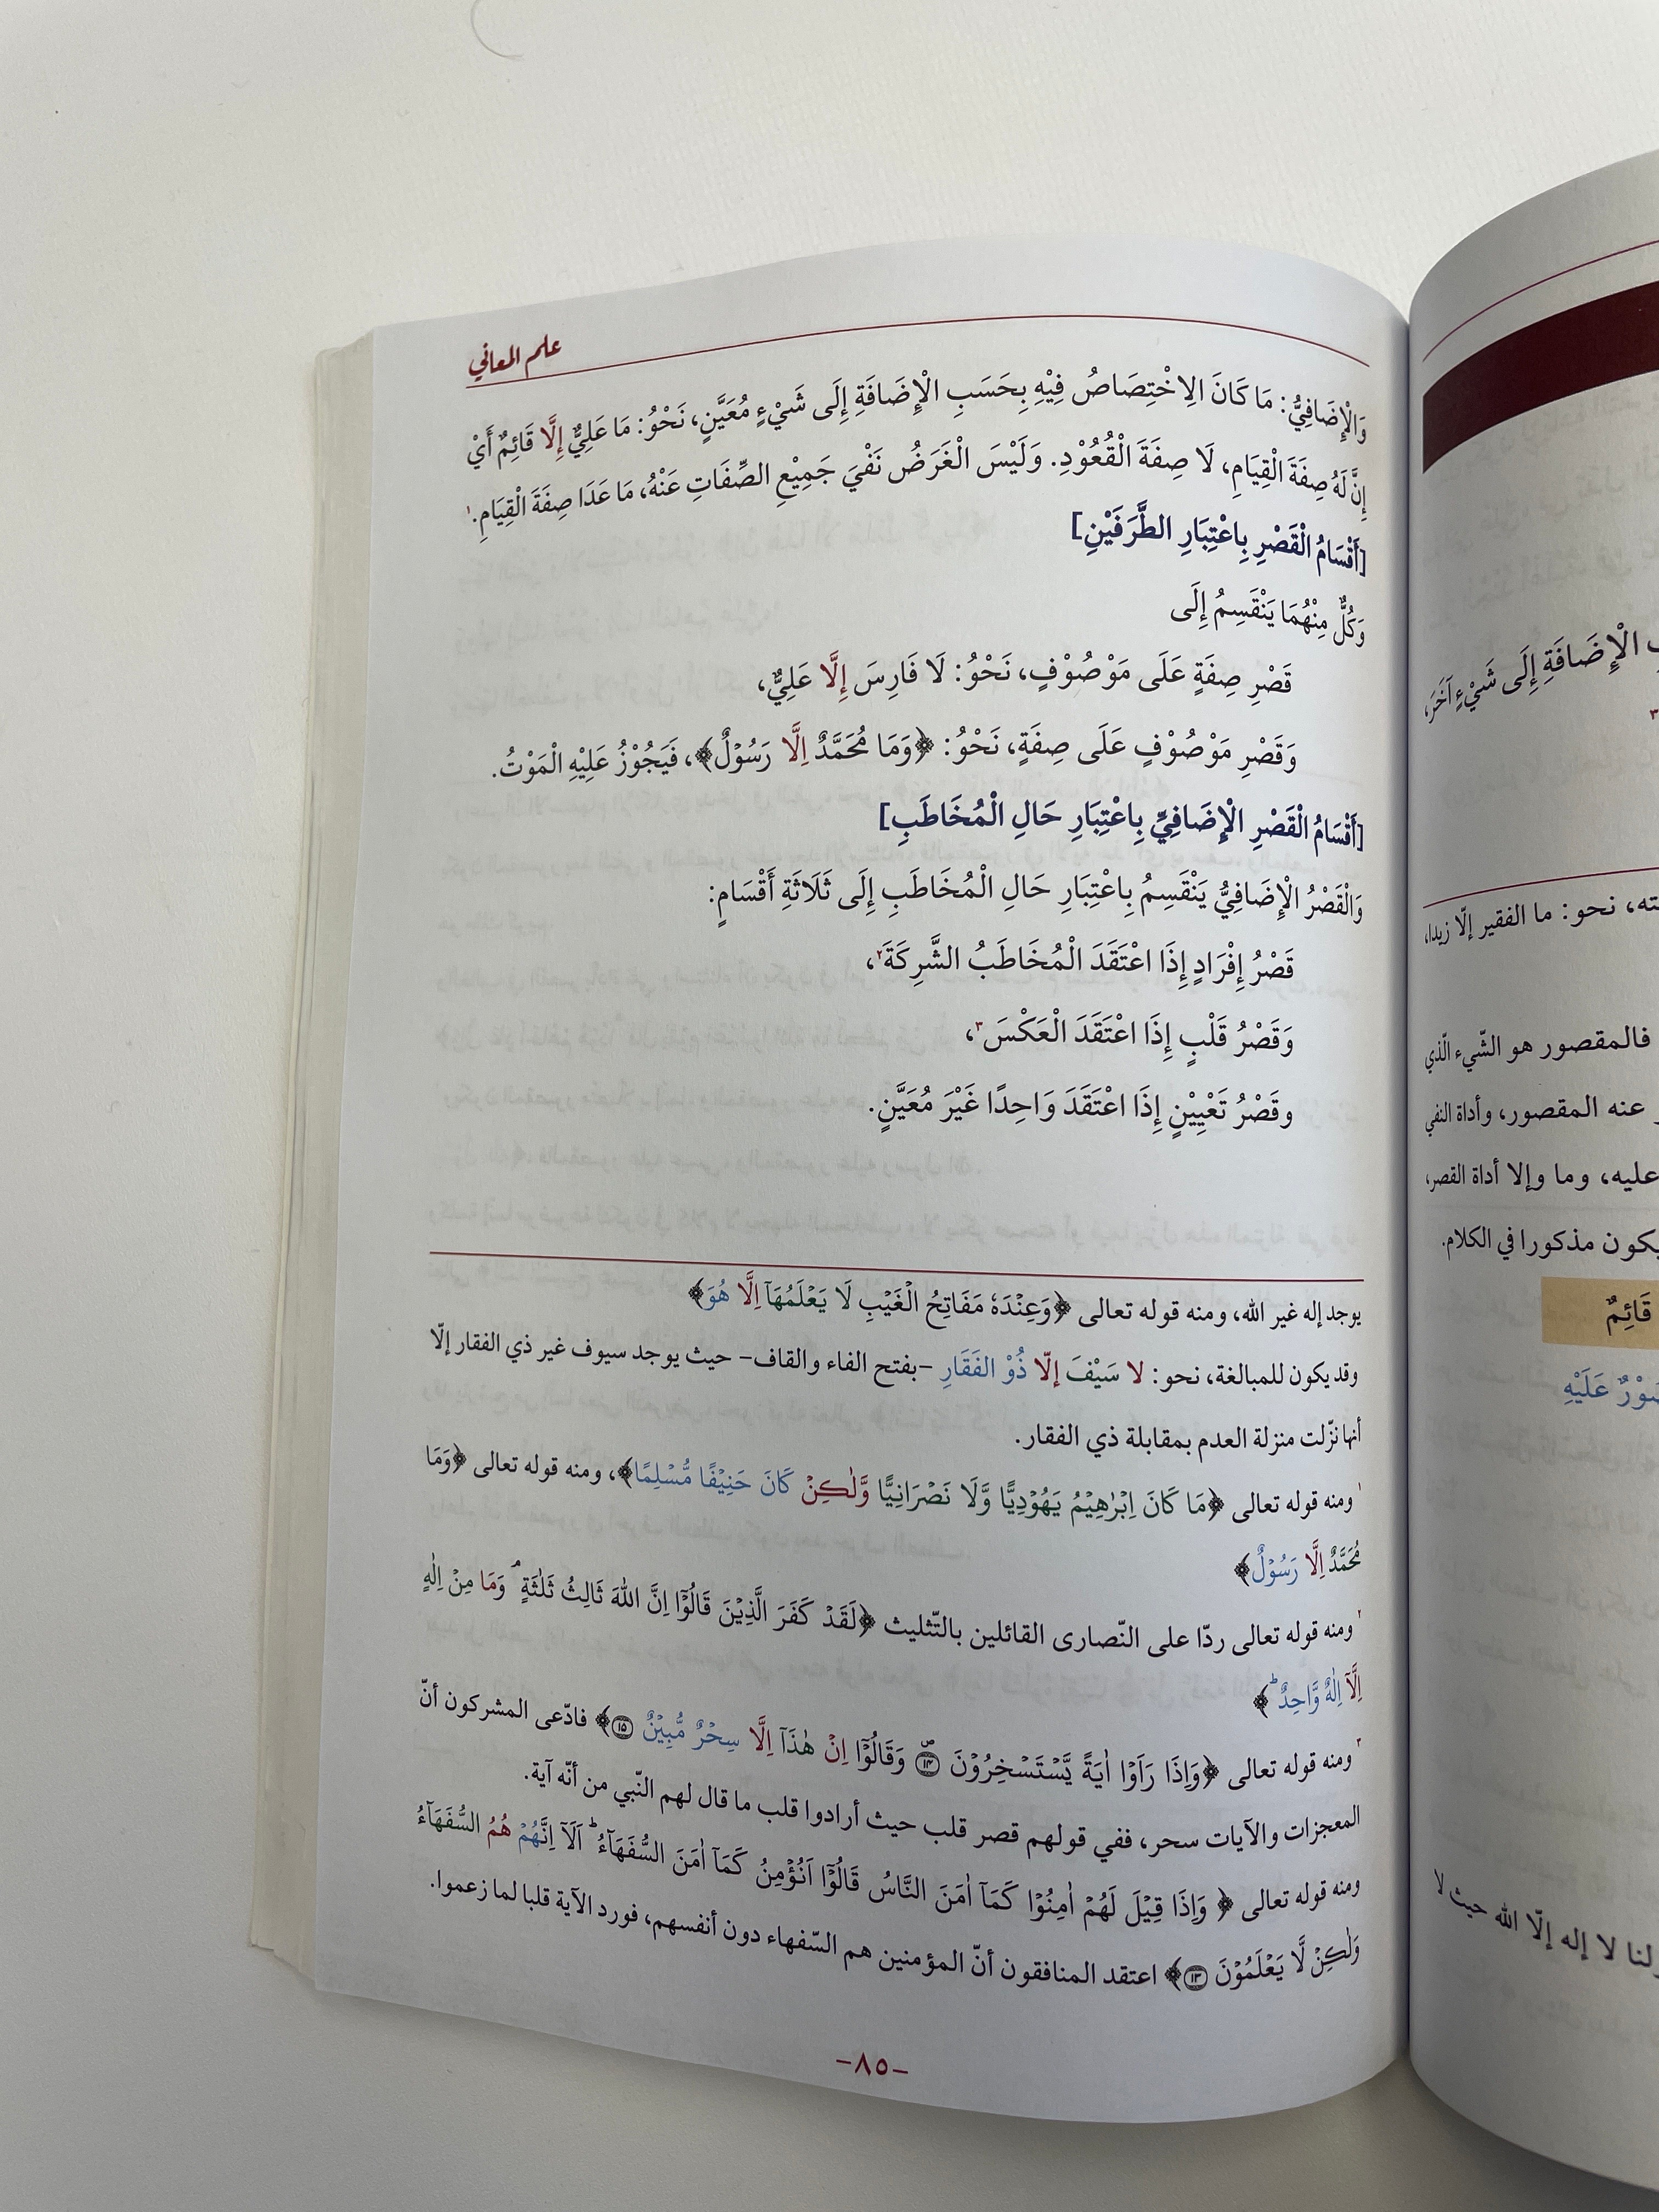 علم المعاني
وَالْإِضَافِيُّ: مَا كَانَ الِاخْتِصَاصُ فِيْهِ بِحَسَبِ الْإِضَافَةِ إِلَى شَيْءٍ مُعَيَّنٍ، نَحْوُ: مَا عَلِيٌّ إِلَّا قَائِمٌ أَيْ
إِنَّ لَهُ صِفَةَ الْقِيَامِ، لَا صِفَةَ الْقُعُوْدِ. وَلَيْسَ الْغَرَضُ نَفْيَ جَمِيْعِ الصِّفَاتِ عَنْهُ، مَا عَدَا صِفَةَ الْقِيَامِ.١
[أَقْسَامُ الْقَصْرِ بِاعْتِبَارِ الطَّرَفَيْنِ]
وَكُلٌّ مِنْهُمَا يَنْقَسِمُ إِلَى
قَصْرِ صِفَةٍ عَلَى مَوْصُوْفٍ، نَحْوُ: لَا فَارِسَ إِلَّا عَلِيٌّ،
وَقَصْرِ مَوْصُوْفٍ عَلَى صِفَةٍ، نَحْوُ: ﴿وَمَا مُحَمَّدٌ اِلَّا رَسُوْلٌ﴾، فَيَجُوْزُ عَلَيْهِ الْمَوْتُ.
[أَقْسَامُ الْقَصْرِ الْإِضَافِيِّ بِاعْتِبَارِ حَالِ الْمُخَاطَبِ]
وَالْقَصْرُ الْإِضَافِيُّ يَنْقَسِمُ بِاعْتِبَارِ حَالِ الْمُخَاطَبِ إِلَى ثَلَاثَةِ أَقْسَامٍ:
قَصْرُ إِفْرَادٍ إِذَا اعْتَقَدَ الْمُخَاطَبُ الشَّرِكَةَ٢،
وَقَصْرُ قَلْبٍ إِذَا اعْتَقَدَ الْعَكْسَ٣،
وقَصْرُ تَعْيِيْنٍ إِذَا اعْتَقَدَ وَاحِدًا غَيْرَ مُعَيَّنٍ.
يوجد إله غير الله، ومنه قوله تعالى ﴿وَعِنْدَهٗ مَفَاتِحُ الْغَيْبِ لَا يَعْلَمُهَآ اِلَّا هُوَ﴾
وقد يكون للمبالغة، نحو: لا سَيْفَ إلّا ذُوْ الفَقَارِ –بفتح الفاء والقاف– حيث يوجد سيوف غير ذي الفقار إلّا
أنها نزّلت منزلة العدم بمقابلة ذي الفقار.
١ ومنه قوله تعالى ﴿مَا كَانَ اِبْرٰهِيْمُ يَهُوْدِيًّا وَّلَا نَصْرَانِيًّا وَّلٰكِنْ كَانَ حَنِيْفًا مُّسْلِمًا﴾، ومنه قوله تعالى ﴿وَمَا
مُحَمَّدٌ اِلَّا رَسُوْلٌ﴾
٢ ومنه قوله تعالى ردّا على النّصارى القائلين بالتّثليث ﴿لَقَدْ كَفَرَ الَّذِيْنَ قَالُوْٓا اِنَّ اللّٰهَ ثَالِثُ ثَلٰثَةٍ ۘ وَمَا مِنْ اِلٰهٍ
اِلَّآ اِلٰهٌ وَّاحِدٌ ؕ﴾
٣ ومنه قوله تعالى ﴿وَاِذَا رَاَوْا اٰيَةً يَّسْتَسْخِرُوْنَ ۝١٤ وَقَالُوْٓا اِنْ هٰذَآ اِلَّا سِحْرٌ مُّبِيْنٌ ۝١٥﴾ فادّعى المشركون أنّ
المعجزات والآيات سحر، ففي قولهم قصر قلب حيث أرادوا قلب ما قال لهم النّبي من أنّه آية.
ومنه قوله تعالى ﴿ وَاِذَا قِيْلَ لَهُمْ اٰمِنُوْا كَمَآ اٰمَنَ النَّاسُ قَالُوْٓا اَنُؤْمِنُ كَمَآ اٰمَنَ السُّفَهَآءُ ؕ اَلَآ اِنَّهُمْ هُمُ السُّفَهَآءُ
وَلٰكِنْ لَّا يَعْلَمُوْنَ ۝١٣﴾ اعتقد المنافقون أنّ المؤمنين هم السّفهاء دون أنفسهم، فورد الآية قلبا لما زعموا.
–٨٥–
الْإِضَافَةِ إِلَى شَيْءٍ آخَرَ،
٣
نحو: ما الفقير إلّا زيدا،
فالمقصور هو الشّيء الّذي
عنه المقصور، وأداة النفي
عليه، وما وإلا أداة القصر،
يكون مذكورا في الكلام.
قَائِمٌ
عَلَيْهِ
لا إله إلّا الله حيث لا